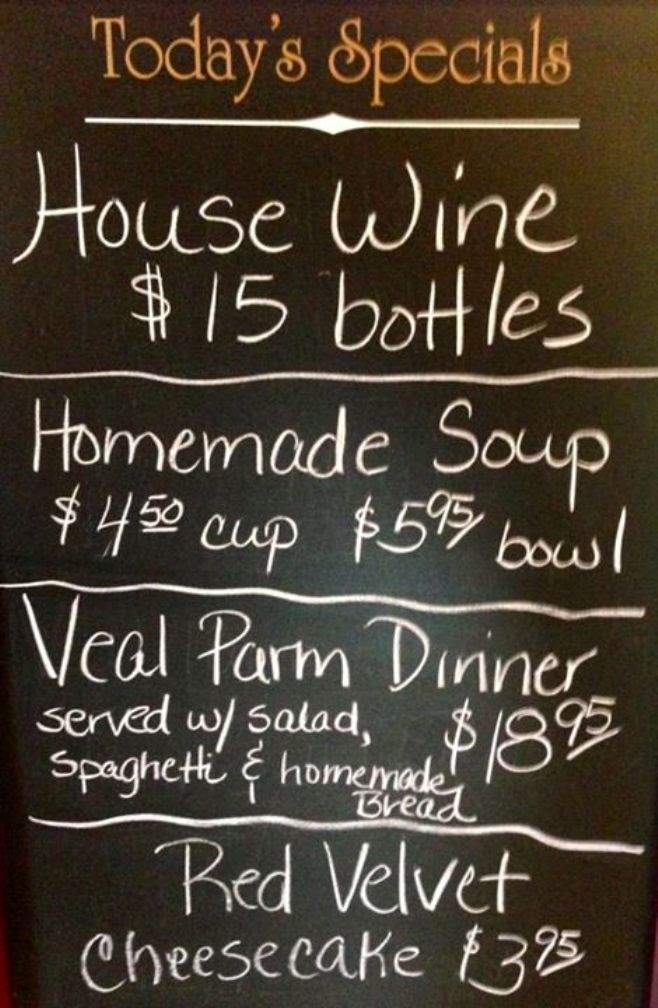 Today's Specials
House Wine
$15 bottles
Homemade Soup
$4.50 cup $5.95 bowl
Veal Parm Dinner
served w/ salad, $18.95
spaghetti & homemade
Bread
Red Velvet
Cheesecake $3.95